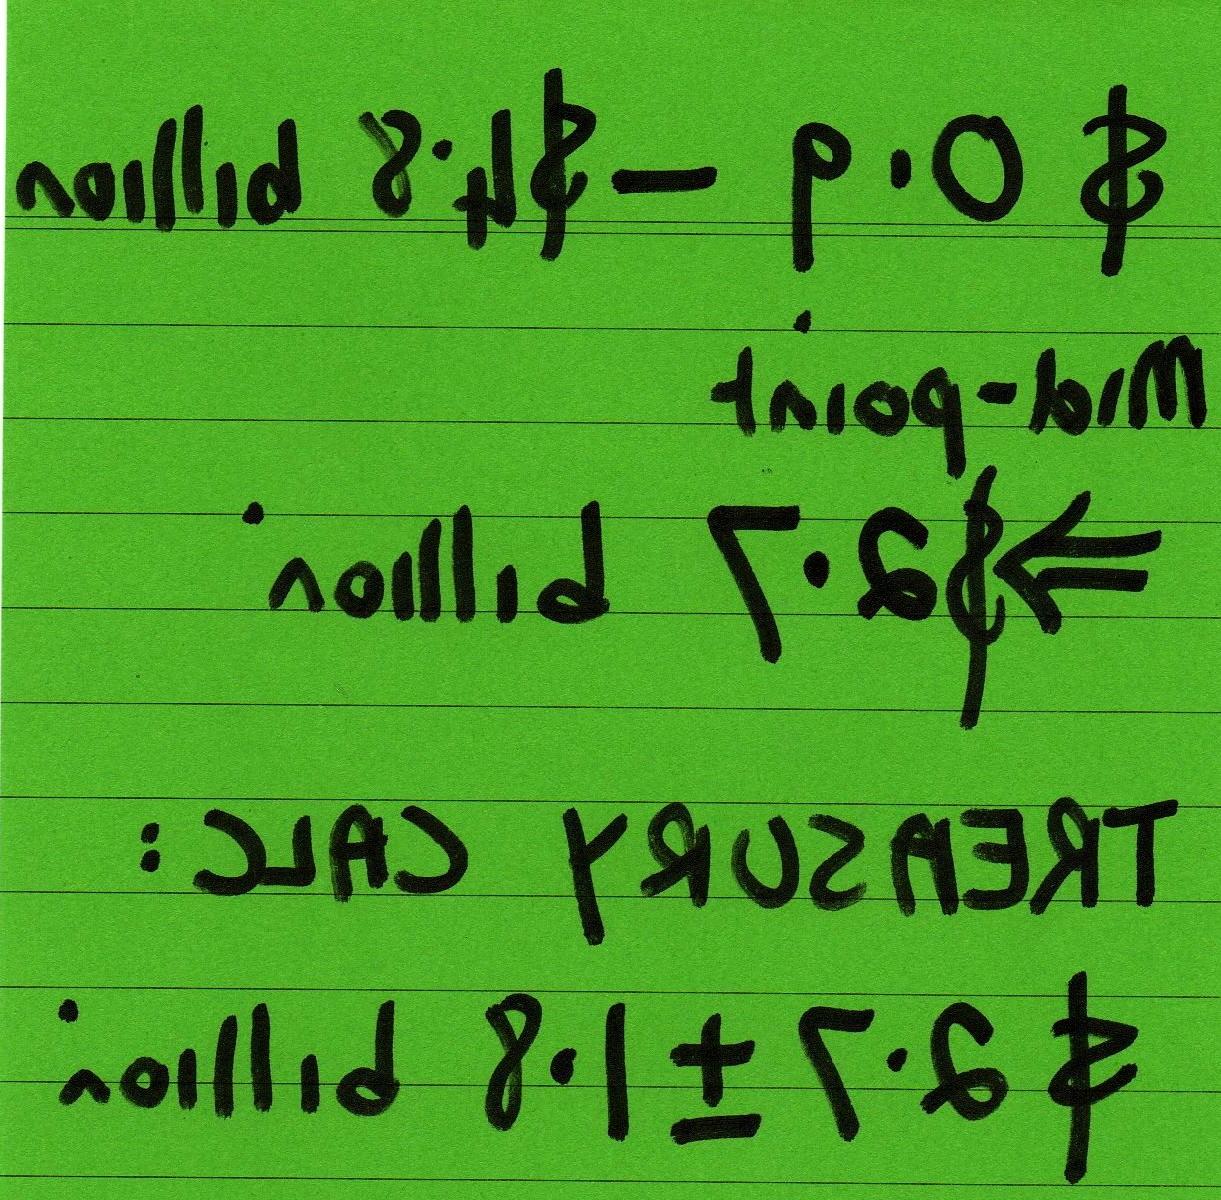 $ 0.9 – $4.8 billion
Mid-point
⇒ $2.7 billion
TREASURY CALC :
$ 2.7 ± 1.8 billion